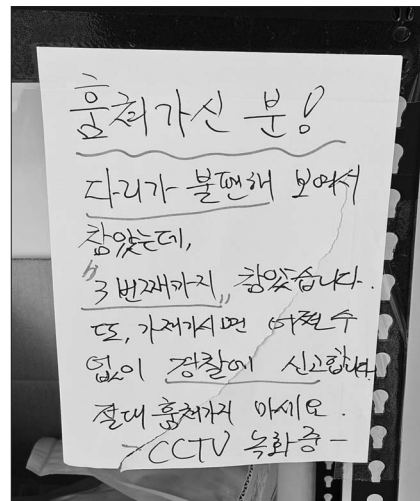 훔쳐가신 분!
다리가 불편해 보여서
참았는데,
"3번째까지" 참았습니다.
또, 가져가시면 어쩔 수
없이 경찰에 신고합니다
절대 훔쳐가지 마세요.
- CCTV 녹화중 -